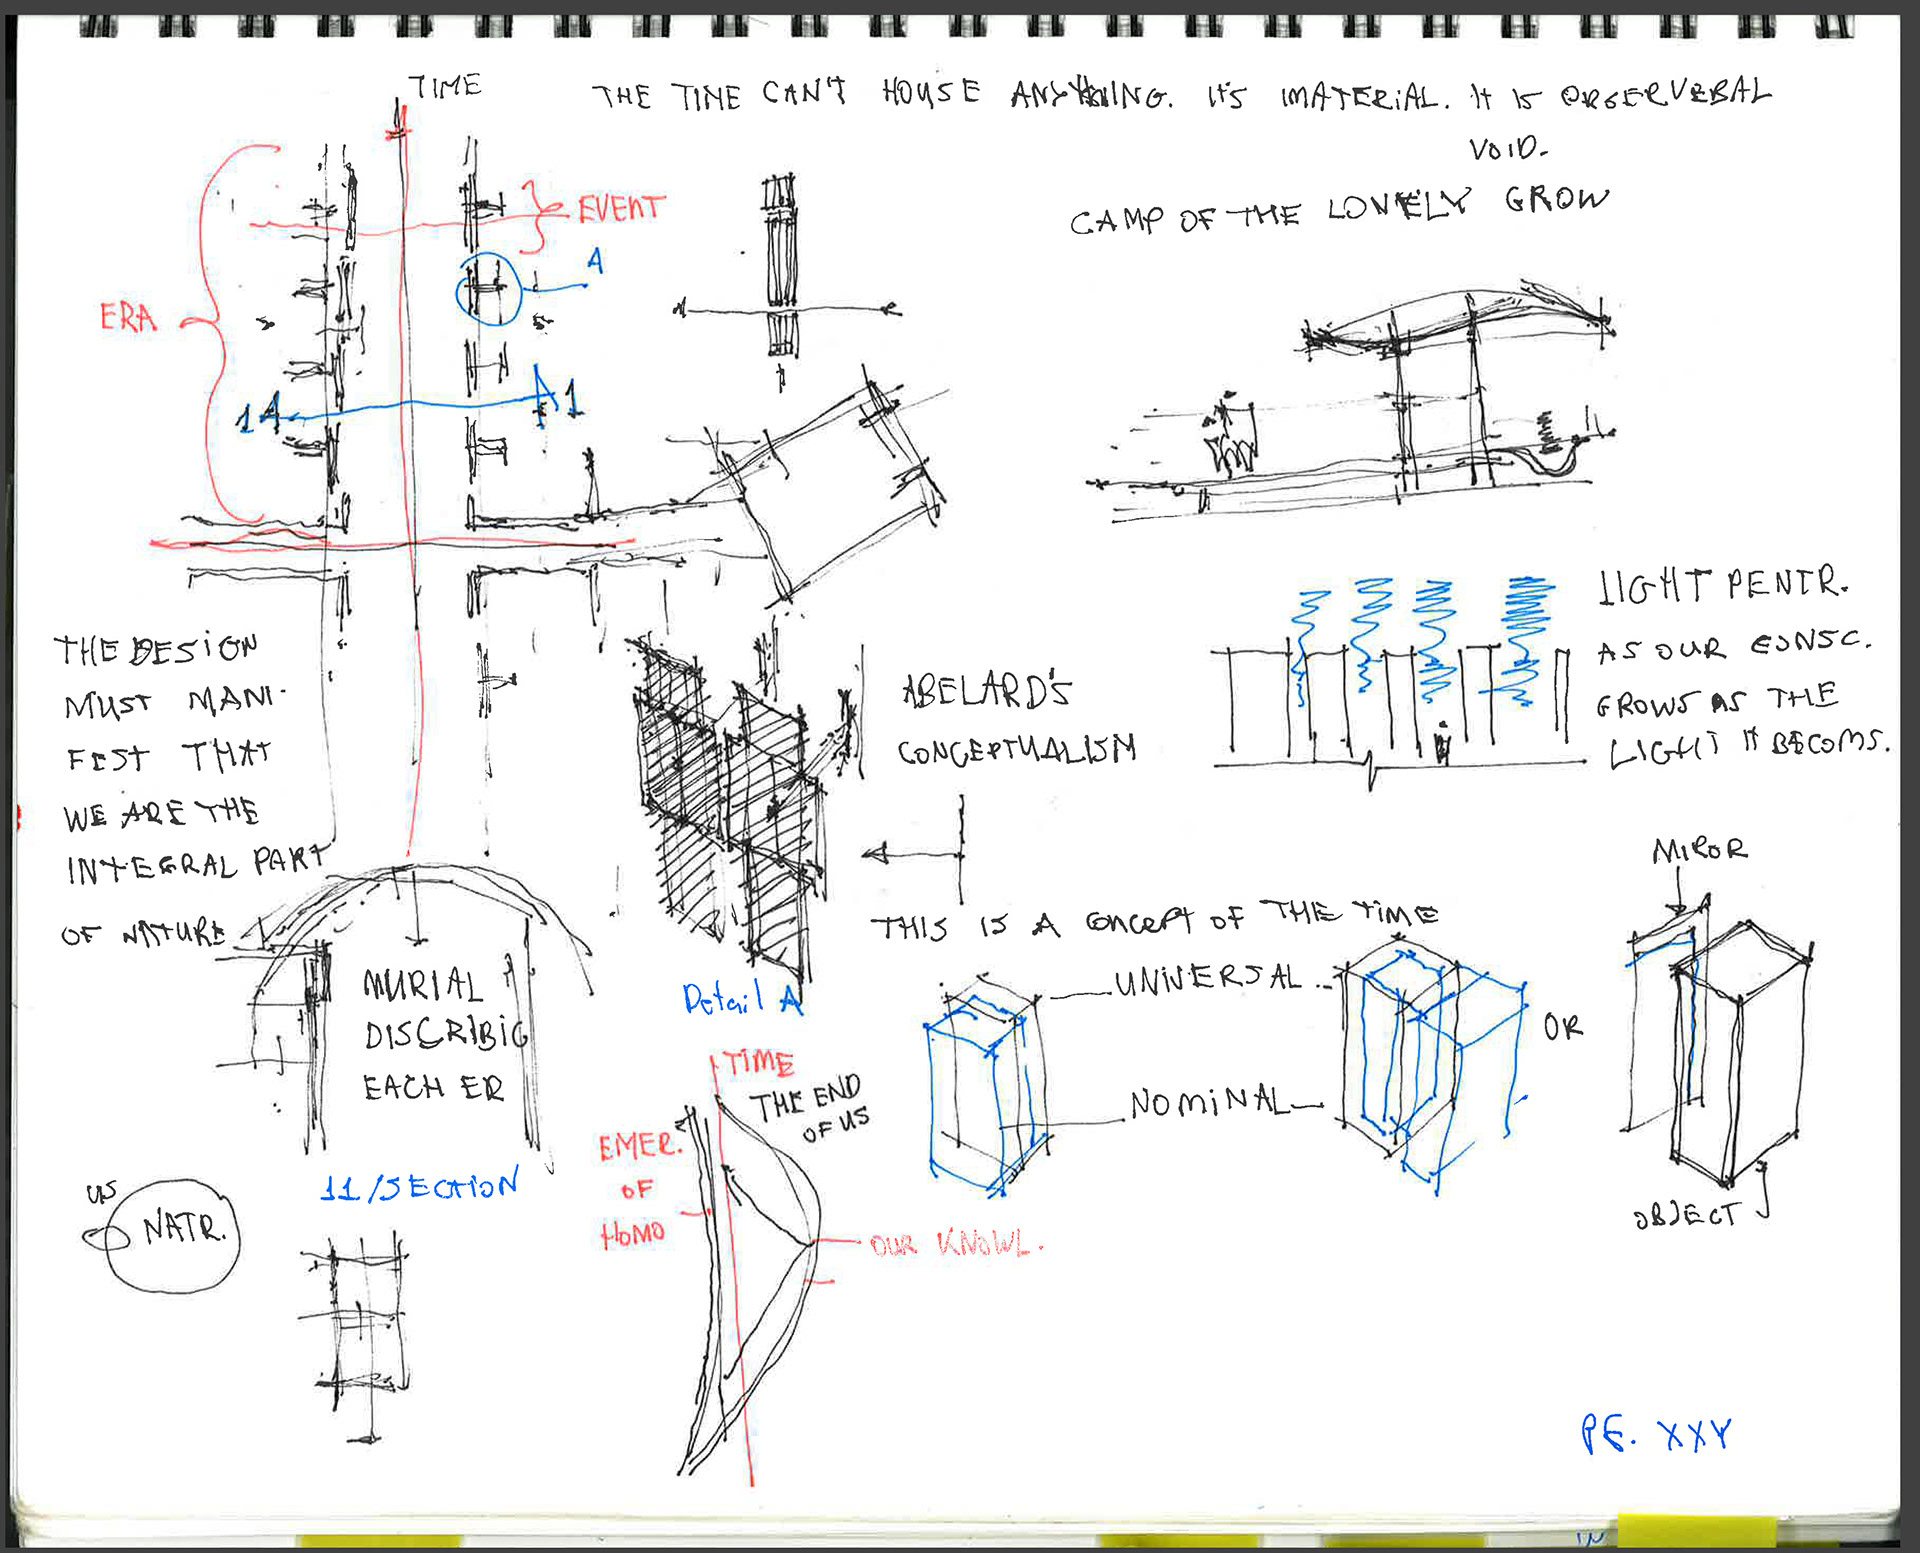 TIME
THE TIME CAN'T HOUSE ANYTHING. IT'S IMATERIAL. IT IS OBSERVEBAL
VOID.
CAMP OF THE LOVELY GROW
EVENT
A
ERA
1 1
THE DESIGN
MUST MANI-
FEST THAT
WE ARE THE
INTEGRAL PART
OF NATURE
ABELARD'S
CONCEPTUALISM
LIGHT PENTR.
AS OUR CONSC.
GROWS AS THE
LIGHT IT BECOMS.
MIROR
THIS IS A CONCEPT OF THE TIME
UNIVERSAL
NOMINAL
OR
OBJECT
Detail A
MURIAL
DISCRIBIG
EACH ER
11/SECTION
US
NATR.
TIME
THE END
OF US
EMER.
OF
HOMO
OUR KNOWL.
PG. XXY